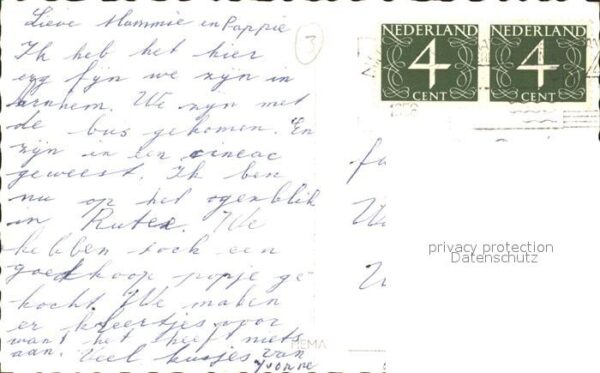 Lieve Mammie en Pappie
Ik heb het hier
erg fijn we zijn in
Arnhem. We zijn met
de bus gekomen. En
zijn in een cineac
geweest. Ik ben
nu op het ogenblik
in Rutex. We
hebben toch een
goedkoop popje ge
kocht. We maken
er kleertjes voor
want het heeft niets
aan. Veel kusjes van
Yvonne
3
NEDERLAND
4
CENT
NEDERLAND
4
CENT
privacy protection
Datenschutz
HEMA